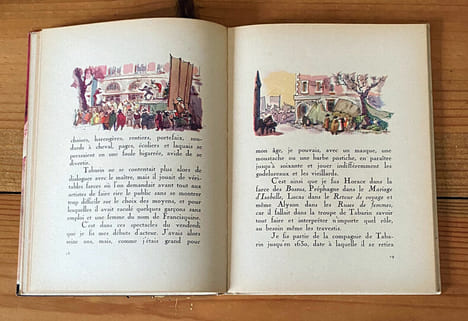 choises, harengères, rentiers, portefaix, sou-
dards à cheval, pages, écoliers et laquais se
pressaient en une foule bigarrée, avide de se
divertir.
Tabarin ne se contentait plus alors de
dialoguer avec le maître, mais il jouait de véri-
tables farces où l'on demandait avant tout aux
artistes de faire rire le public sans se montrer
trop difficile sur le choix des moyens, et pour
lesquelles il avait racolé quelques garçons sans
emploi et une femme du nom de Francisquine.
C'est dans ces spectacles du vendredi
que je fis mes débuts d'acteur. J'avais alors
seize ans, mais, comme j'étais grand pour
mon âge, je pouvais, avec un masque, une
moustache ou une barbe postiche, en paraître
jusqu'à soixante et jouer indifféremment les
godelureaux et les vieillards.
C'est ainsi que je fus Horace dans la
farce des Bossus, Préphagne dans le Mariage
d'Isabelle, Lucas dans le Retour de voyage et
même Alyson dans les Ruses de femmes,
car il fallait dans la troupe de Tabarin savoir
tout faire et interpréter n'importe quel rôle,
au besoin même les travestis.
Je fis partie de la compagnie de Taba-
rin jusqu'en 1630, date à laquelle il se retira